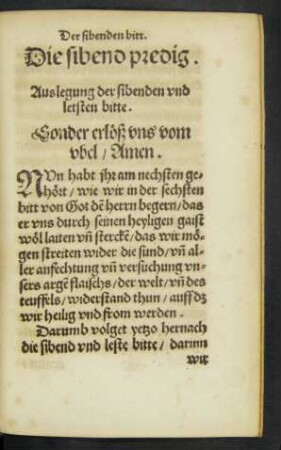 Der sibenden bitt.
Die sibend predig.
Auslegung der sibenden vnd
letsten bitte.
Sonder erlöß vns vom
vbel / Amen.
NVn habt jhr am nechsten ge-
hört / wie wir in der sechsten
bitt von Got dē herrn begern / das
er vns durch seinen heyligen gaist
wöl laiten vn̄ sterckē / das wir mö-
gen streiten wider die sünd / vn̄ al-
ler anfechtung vn̄ versůchung vn-
sers argē flaischs / der welt / vn̄ des
teuffels / widerstand thun / auff dz
wir heilig vnd from werden.
Darumb volget yetzo hernach
die sibend vnd leste bitte / darinn
wir